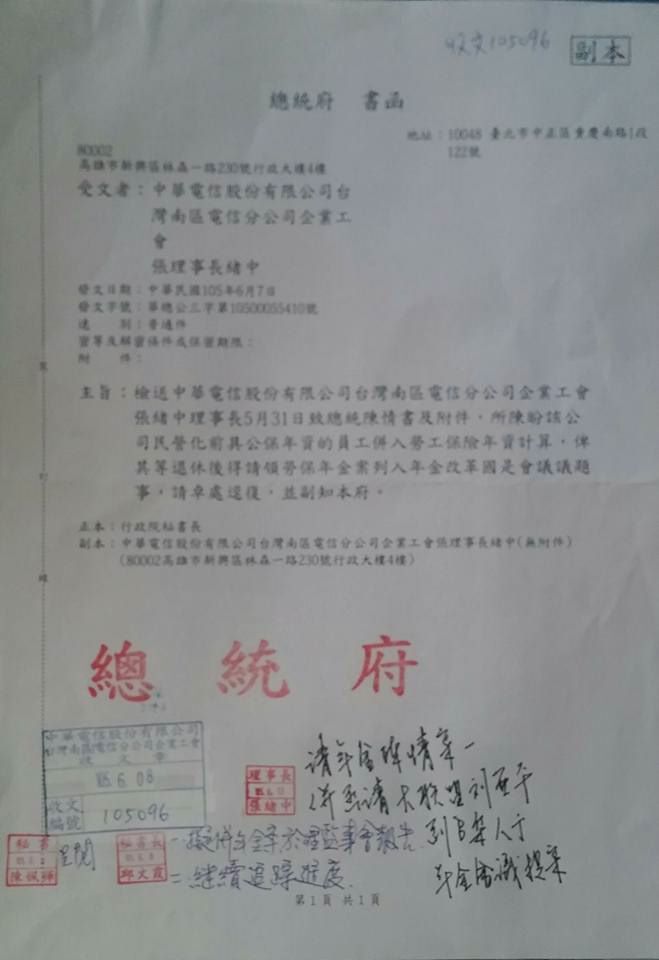 收文105096
副本
總統府 書函
地址：10048 臺北市中正區重慶南路1段
122號
80002
高雄市新興區林森一路230號行政大樓4樓
受文者：中華電信股份有限公司台
灣南區電信分公司企業工
會
張理事長緒中
發文日期：中華民國105年6月7日
發文字號：華總公三字第10500055410號
速 別：普通件
密等及解密條件或保密期限：
附 件：
主旨：檢送中華電信股份有限公司台灣南區電信分公司企業工會
張緒中理事長5月31日致總統陳情書及附件，所陳盼該公
司民營化前具公保年資的員工併入勞工保險年資計算，俾
其等退休後得請領勞保年金案列入年金改革國是會議議題
事，請卓處逕復，並副知本府。
正本：行政院秘書長
副本：中華電信股份有限公司台灣南區電信分公司企業工會張理事長緒中(無附件)
(80002高雄市新興區林森一路230號行政大樓4樓)
裝
訂
線
總統府
中華電信股份有限公司
台灣南區電信分公司企業工會
收文章
105.6.08
收文
編號
105096
理事長
張緒中
請年金陳情案一
併
請大聯盟劉
列
案
年金會議提案
秘書長
邱文霞
一擬併
全案於理監事會報告
二繼續追蹤進度
秘書
陳佩
第1頁 共1頁